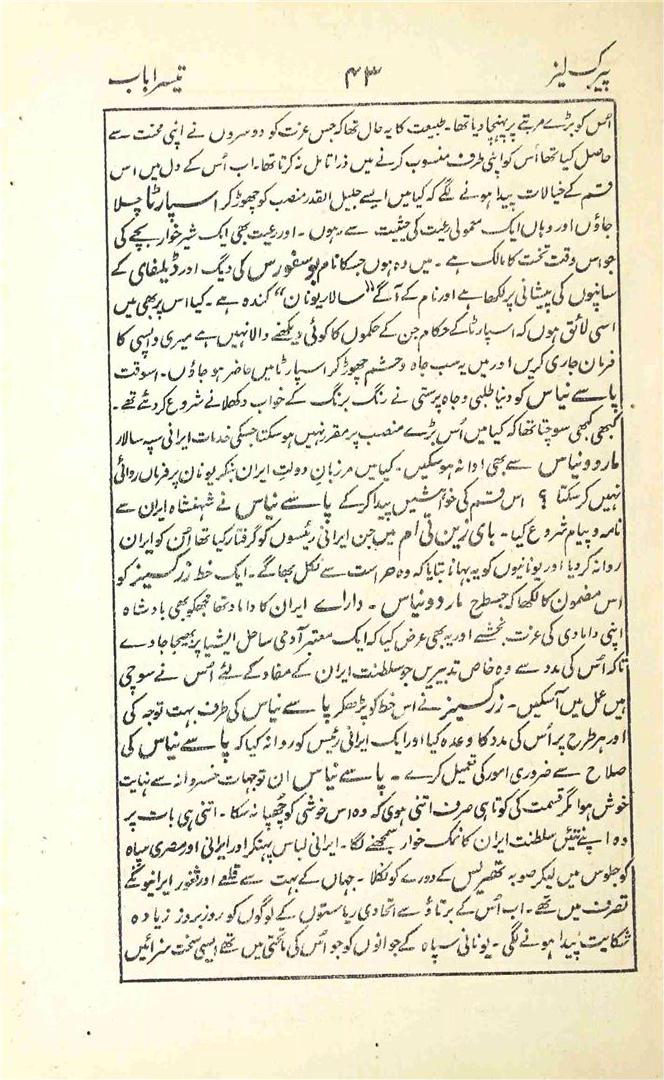 پیرک لیز ۴۳ تیسرا باب
اُس کو بڑے مرتبے پر پہنچا دیا تھا۔ طبیعت کا یہ حال تھا کہ جس عزت کو دوسروں نے اپنی محنت سے
حاصل کیا تھا اُس کو اپنی طرف منسوب کرنے میں ذرا تامل نہ کرتا تھا۔ اب اُس کے دل میں اس
قسم کے خیالات پیدا ہونے لگے کہ کیا میں ایسے جلیل القدر منصب کو چھوڑ کر اسپارٹا چلا
جاؤں اور وہاں ایک معمولی رعیت کی حیثیت سے رہوں۔ اور رعیت بھی ایک شیر خوار بچے کی
جو اس وقت تخت کا مالک ہے۔ میں وہ ہوں جسکا نام بوسفورس کی دیگ اور ڈیلفای کے
سانپوں کی پیشانی پر لکھا ہے اور نام کے آگے "سالار یونان" کندہ ہے۔ کیا اس پر بھی میں
اسی لائق ہوں کہ اسپارٹا کے حکام جن کے حکموں کا کوئی دیکھنے والا نہیں ہے میری واپسی کا
فرمان جاری کریں اور میں یہ سب جاہ و حشم چھوڑ کر اسپارٹا میں حاضر ہو جاؤں۔ اسوقت
پاسے نیاس کو دنیا طلبی و جاہ پرستی نے رنگ برنگ کے خواب دکھلانے شروع کر دئے تھے۔
کبھی کبھی سوچتا تھا کہ کیا میں اُس بڑے منصب پر مقرر نہیں ہو سکتا جسکی خدمات ایرانی سپہ سالار
ماردونیاس سے بھی ادا نہ ہو سکیں۔ کیا میں مرزبان دولتِ ایران بنکر یونان پر فرماں روائی
نہیں کر سکتا ؟ اس قسم کی خواہشیں پیدا کر کے پاسے نیاس نے شہنشاہ ایران سے
نامہ و پیام شروع کیا۔ بای زین ٹی ام میں جن ایرانی رئیسوں کو گرفتار کیا تھا اُن کو ایران
روانہ کر دیا اور یونانیوں کو یہ بہانا بتایا کہ وہ حراست سے نکل بھاگے۔ ایک خط زرکسیز کو
اس مضمون کا لکھا کہ جسطرح ماردونیاس۔ داراے ایران کا داماد تھا مجھکو بھی بادشاہ
اپنی دامادی کی عزت بخشے اور یہ بھی عرض کیا کہ ایک معتبر آدمی ساحل ایشیا پر بھیجا جا دے
تاکہ اُس کی مدد سے وہ خاص تدبیریں جو سلطنت ایران کے مفاد کے لئے اُس نے سوچی
ہیں عمل میں آسکیں۔ زرکسیز نے اس خط کو پڑھکر پاسے نیاس کی طرف بہت توجہ کی
اور ہر طرح پر اُس کی مدد کا وعدہ کیا اور ایک ایرانی رئیس کو روانہ کیا کہ پاسے نیاس کی
صلاح سے ضروری امور کی تعمیل کرے۔ پاسے نیاس ان توجہات خسروانہ سے نہایت
خوش ہوا مگر قسمت کی کوتاہی صرف اتنی ہوئی کہ وہ اس خوشی کو چھپا نہ سکا۔ اتنی ہی بات پر
وہ اپنے تئیں سلطنت ایران کا نمک خوار سمجھنے لگا۔ ایرانی لباس پہنکر اور ایرانی اور مصری سپاہ
کو جلوس میں لیکر صوبہ تھریس کے دورے کو نکلا۔ جہاں کے بہت سے قلعے اور ثغور ایرانیوں کے
تصرف میں تھے۔ اب اُس کے برتاؤ سے اتحادی ریاستوں کے لوگوں کو روز بروز زیادہ
شکایت پیدا ہونے لگی۔ یونانی سپاہ کے جوانوں کو جو اُس کی ماتحتی میں تھے ایسی سخت سزائیں